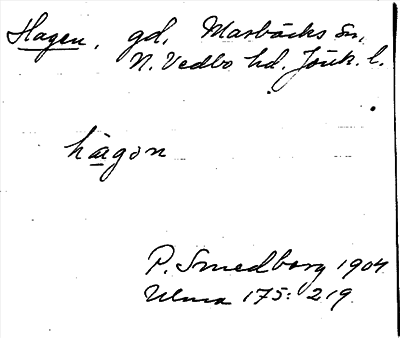 Hagen, gd, Marbäcks sn,
N. Vedbo hd. Jönk. l.
hagən
P. Smedberg 1904
Ulma 175: 219.